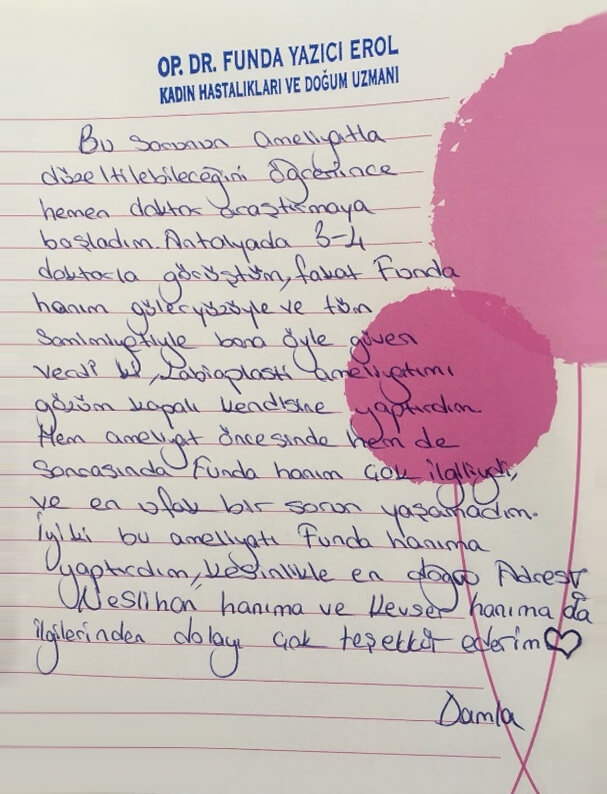 OP. DR. FUNDA YAZICI EROL
KADIN HASTALIKLARI VE DOĞUM UZMANI
Bu sorunun ameliyatla
düzeltilebileceğini öğrenince
hemen doktor araştırmaya
başladım. Antalyada 3-4
doktorla görüştüm, fakat Funda
hanım güleryüzüyle ve tüm
samimiyetiyle bana öyle güven
verdi ki, Labioplasti ameliyatımı
gözüm kapalı kendisine yaptırdım.
Hem ameliyat öncesinde hem de
sonrasında Funda hanım çok ilgiliydi,
ve en ufak bir sorun yaşamadım.
İyiki bu ameliyatı Funda hanıma
yaptırdım, kesinlikle en doğru Adres
Neslihan hanıma ve Kevser hanıma da
ilgilerinden dolayı çok teşekkür ederim♡
Damla